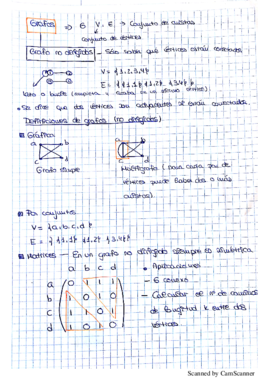 Grafos ⇒ G V, E → Conjunto de aristas
conjunto de vértices
Grafo no dirigidos - Sólo sabes qué vértices están conectados
V = {1,2,3,4}
E = {{1,1} {1,2} {3,4}}
lazo o bucle (empieza y acaba en el mismo vértice).
• Se dice que dos vértices son adyacentes si están conectados.
Definiciones de grafos (no dirigidos)
Gráfica
a b a b
c d c d
Grafo simple Multigrafo (para cada par de
vértices puede haber dos o más
aristas)
Por conjuntos
V = {a, b, c, d}
E = { {1,1} {1,2} {3,4}}
Matrices - En un grafo no dirigido siempre es simétrica.
a b c d • Aplicaciones
a 0 1 1 1 - G conexo
b 1 0 1 0 - Calcular el nº de caminos
c 1 1 0 1 de longitud k entre dos
d 1 0 1 0 vértices.
Scanned by CamScanner